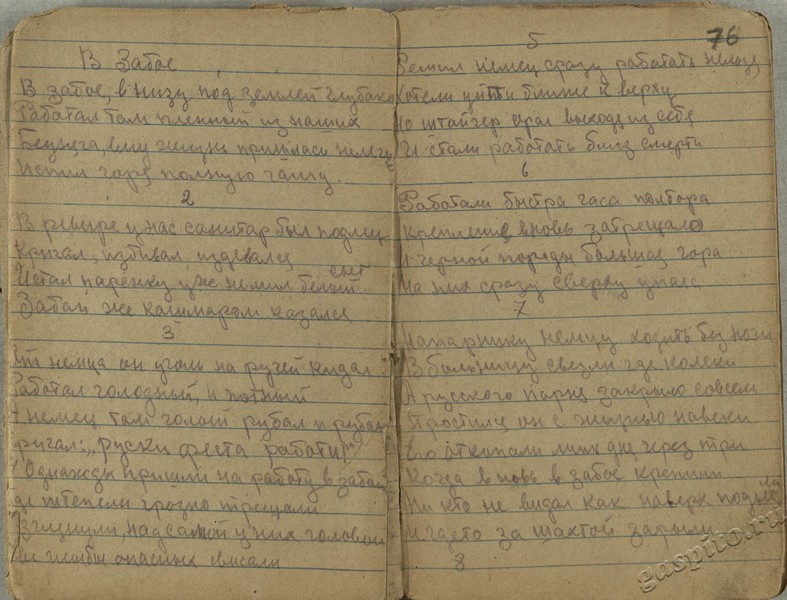 В Забое
В забое, внизу под землей глубоко
Работал там пленный из наших
Бедняга, ему жизнь пришлась нелегко
Испил горя полную чашу.
2
В ревире у нас санитар был подлец
Кричал, избивал, издевался
И стал пареньку уже не мил белый свет
Забой же кашмаром казался
3
немца он уголь на ручей кидал
Работал голодный, и потный
А немец там голый рубал и рубал
ругал: „Руски феста работи!"
Однажды пришли на работу в забой
Где штепеля грозно трещали
Взгленули, над самой у них головой
глыбы опасных свисали
5
76
Решил немец сразу работать нельзя,
Хотели уйти ближе к верху
Но штайгер орал выходя из себя
И стали работать близ смерти
6
Работали быстра часа полтора
Крепление вновь затрещало
И черной породы большая гора
На них сразу сверху упала
7
Напарнику немцу ходить без ноги
В больницу свезли где колеки
А русского парня закрыло совсем
Простился он с жизнью навеки
Его откопали лишь дня через три
Когда вновь в забое крепили
Ни кто не видал как наверх подняли
И гдето за шахтой зарыли
8
gaspito.ru